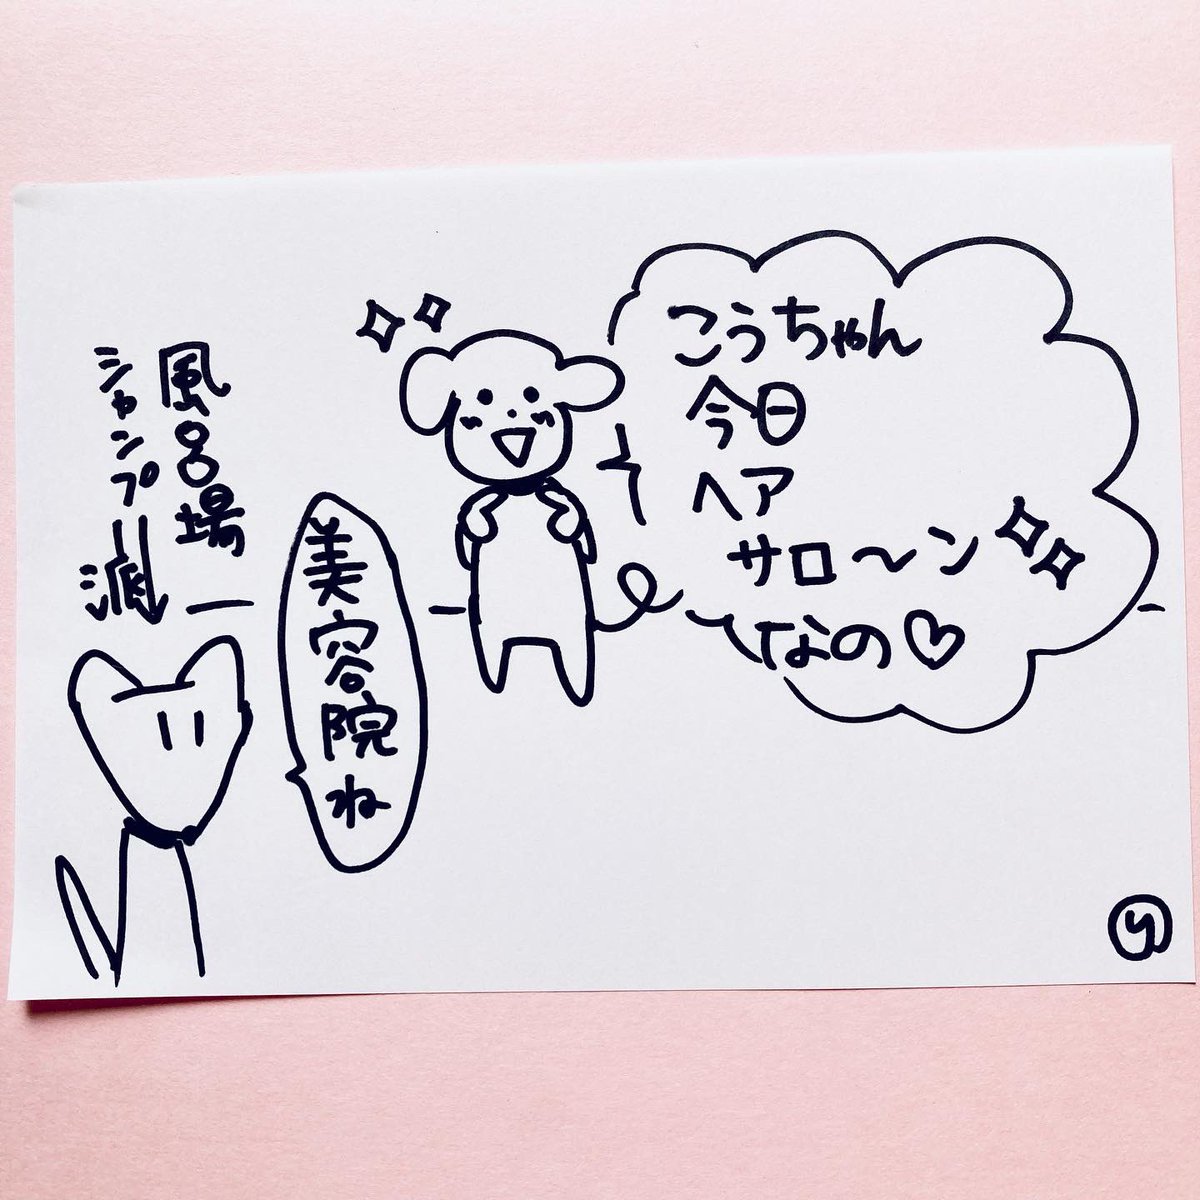 こうちゃん
今日
ヘア
サロ〜ン
なの♡
美容院ね
風呂場
シャンプー派
り